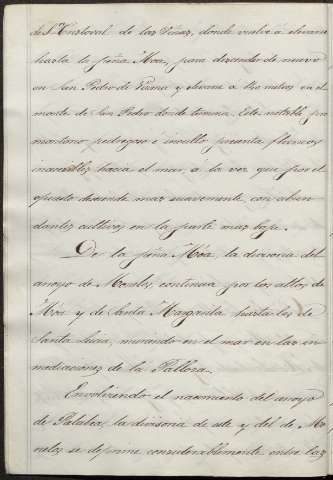 de S. Cristoval de las Viñas, donde vuelve á elevarse
hasta la peña Moa, para descender de nuevo
en San Pedro de Visma y elevarse a 140 metros en el
monte de San Pedro donde termina. Este notable pro
montorio pedregoso é inculto presenta flancos
inaccesibles hacia el mar, a la vez que por el
opuesto desciende mas suavemente con abun
dantes cultivos en la parte mas baja.
De la peña Moa, la divisoria del
arroyo de Monelos, continua por los altos de
Moa y de Santa Margarita hasta los de
Santa Lucia, muriendo en el mar en las in
mediaciones de la Palloza.
Envolviendo el nacimiento del arroyo
de Palabea, la divisoria de este y del de Mo
nelos se deprime considerablemente entre las